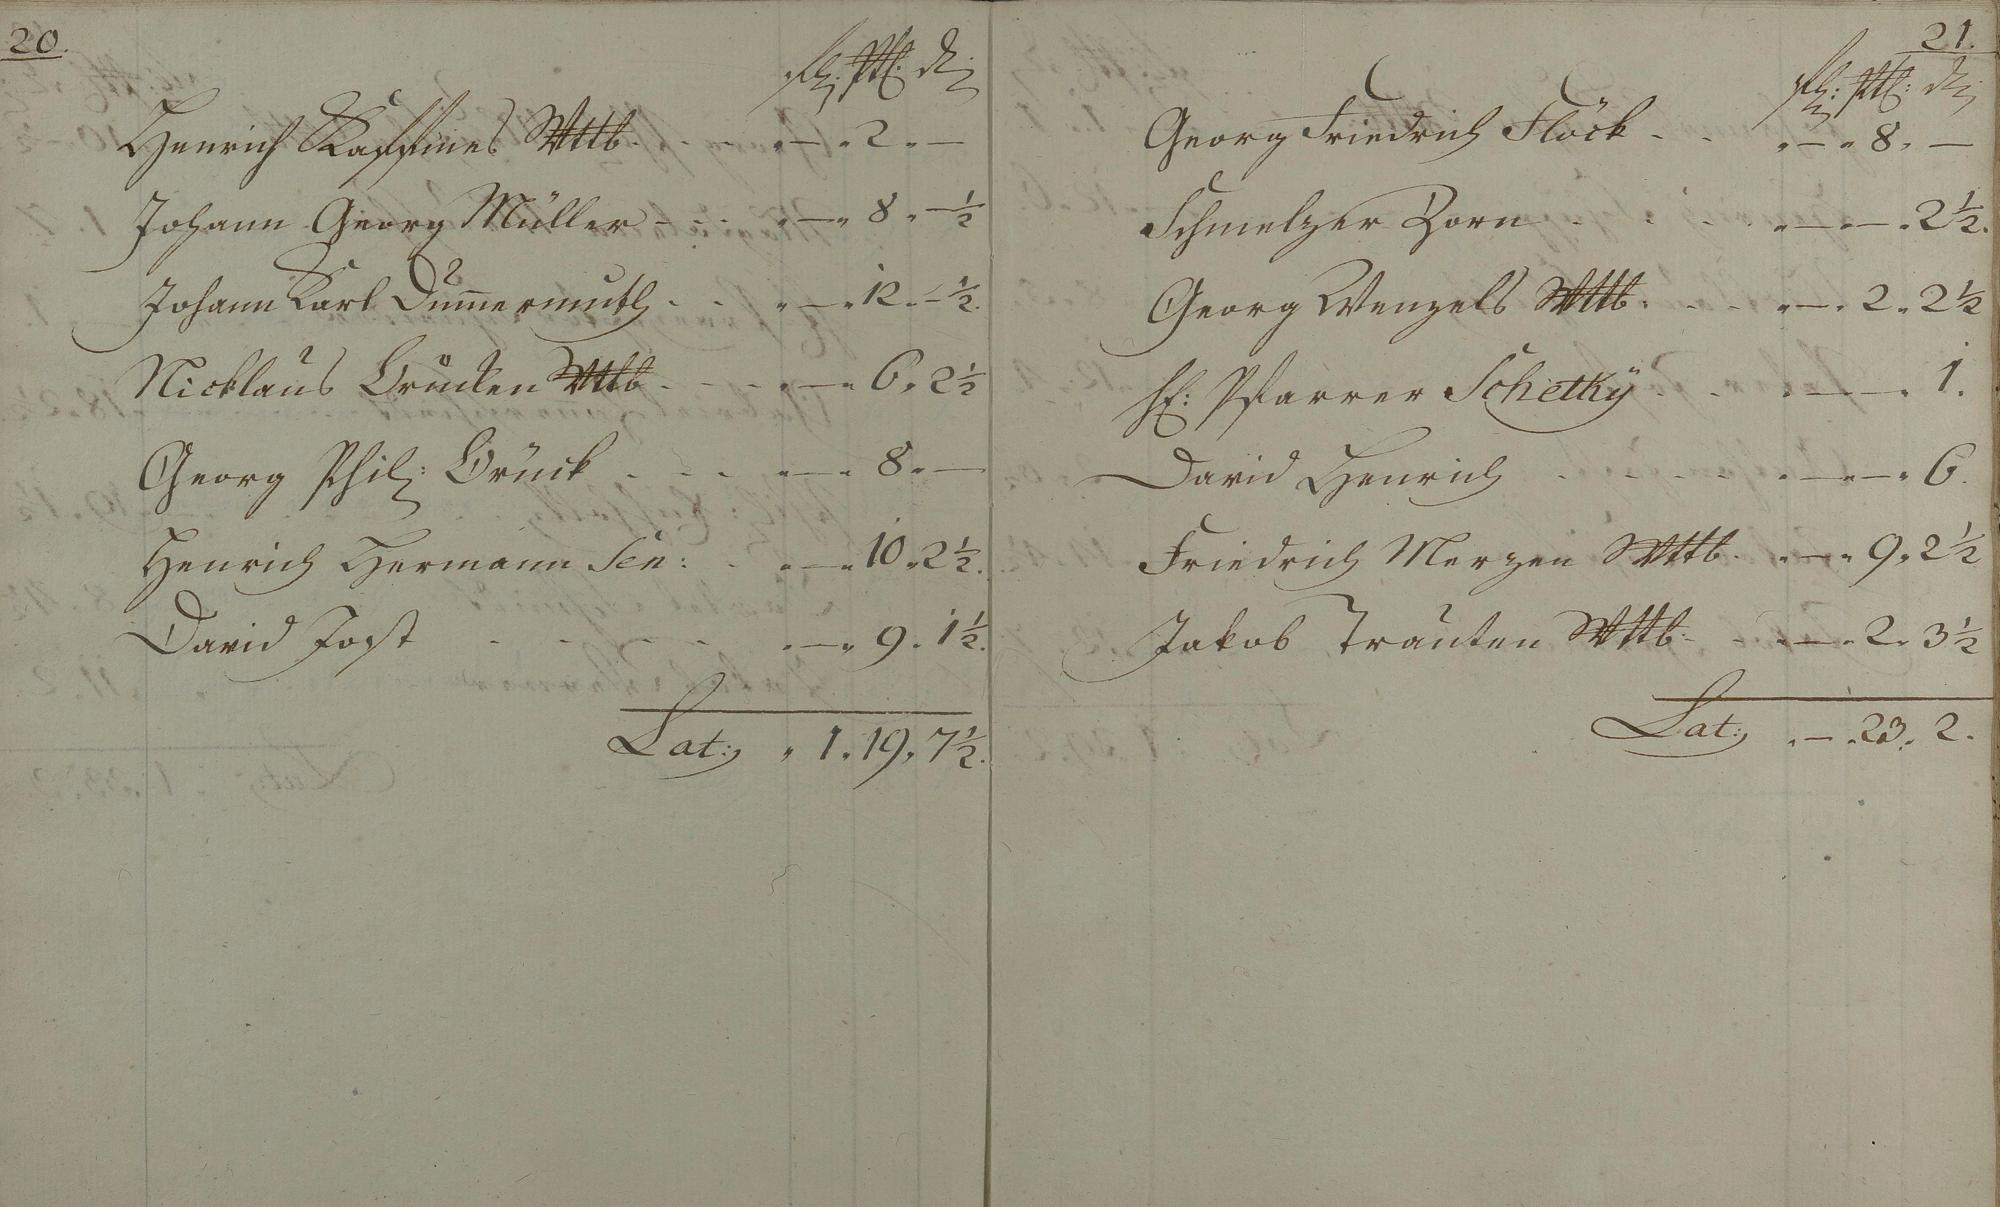 20.
Henrich Kaffines Wttb. - - - „ — „ 2 „ —
Johann Georg Müller - - - „ — „ 8 „ — ½
Johann Karl Dum̅ermuth - - „ — „ 12 „ — ½.
Nicklaus Brücken Wttb - - - „ — „ 6 „ 2½
Georg Phil: Brück - - - „ — „ 8 „ —
Henrich Hermann Sen: - „ — „ 10 „ 2½.
David Jost - - - - „ — „ 9 „ 1½.
Lat: „ 1 „ 19 „ 7½.
21.
Georg Friedrich Flöck - - „ — „ 8 „ —
Schmelzer Zorn - - - „ — „ — „ 2½.
Georg Wenzels Wttb: - - „ — „ 2 „ 2½
H: Pfarrer Schetkÿ - - „ — „ — „ 1.
David Henrich - - - - „ — „ — „ 6.
Friedrich Merzen Wttb. „ — „ 9 „ 2½
Jakob Trauten Wttb: - „ — „ 2 „ 3½
Lat: „ — „ 23 „ 2.